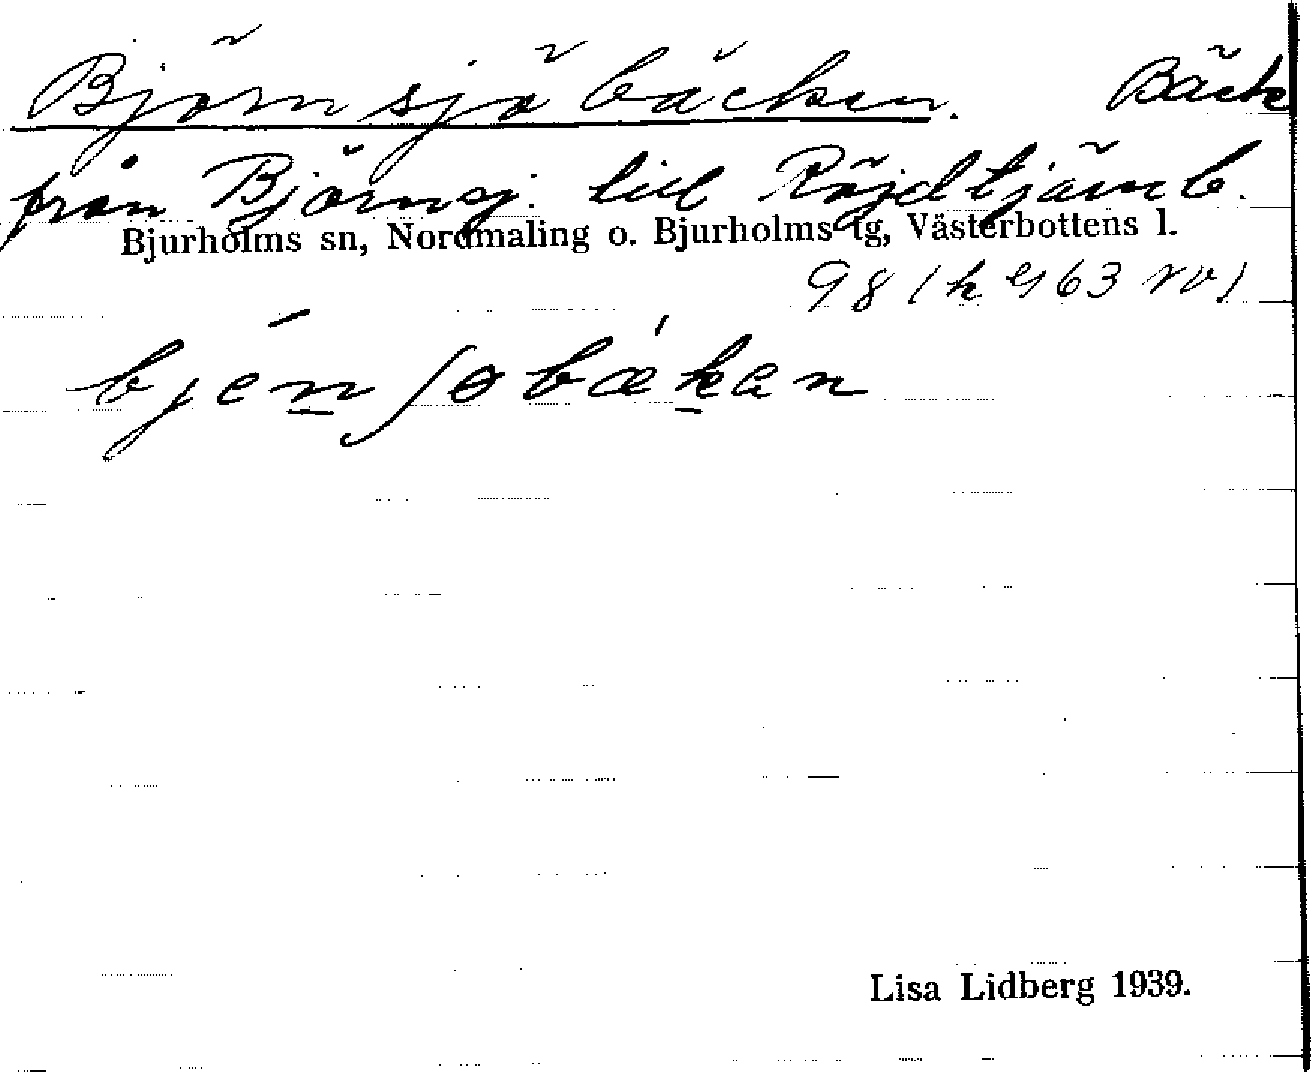 Björnsjöbäcken. Bäck
från Björnsj. till Röjdtjärnb.
Bjurholms sn, Nordmaling o. Bjurholms tg, Västerbottens l.
981 k
bjēnʃobǽkan
Lisa Lidberg 1939.